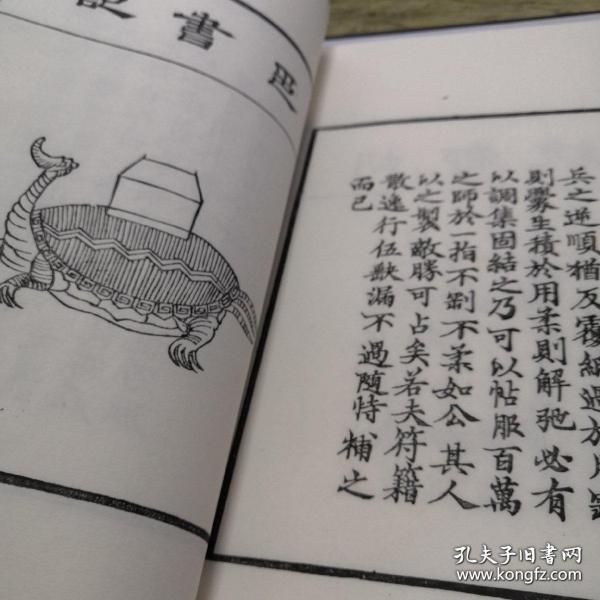 書
兵之逆順猶反覆紙過於
則釁生積於用柔則解弛必有
以調集固結之乃可以帖服百萬
之師於一指不剛不柔如公其人
以之製敵勝可占矣若夫符籍
散逸行伍缺漏不過隨時補之
而已
孔夫子旧书网
www.kongfz.com